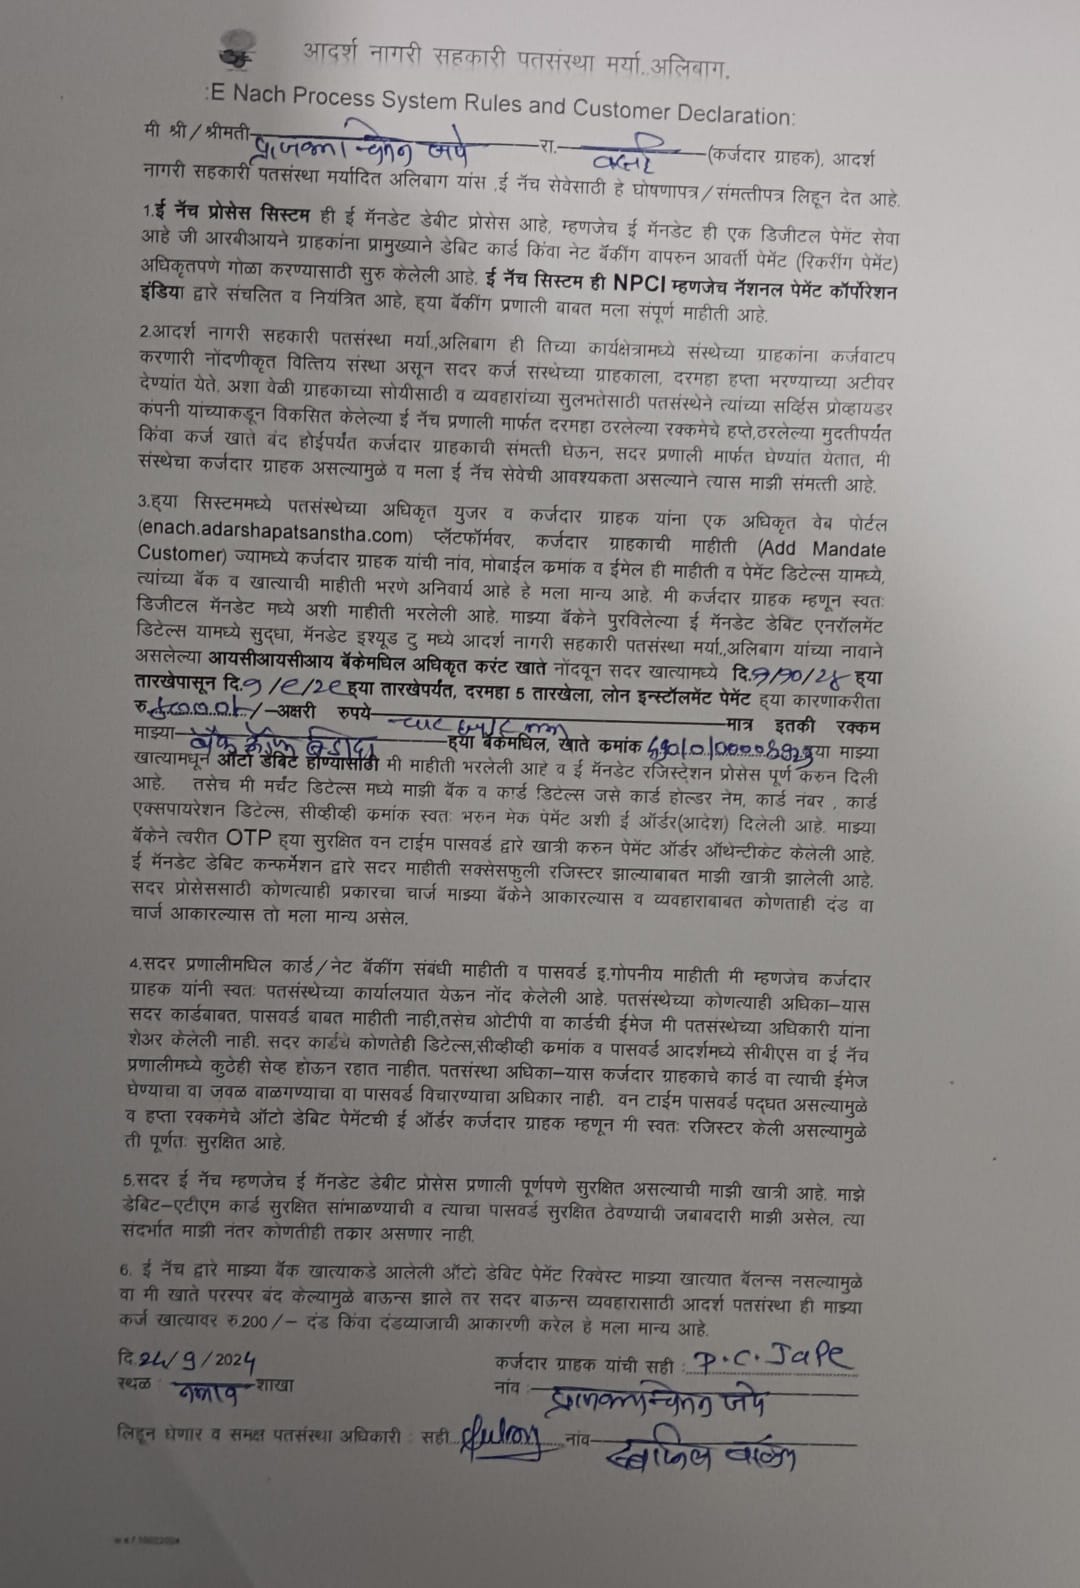 आदर्श नागरी सहकारी पतसंस्था मर्या..अलिबाग.
:E Nach Process System Rules and Customer Declaration:
मी श्री/श्रीमती प्राजक्ता चेतन जपे रा. (कर्जदार ग्राहक), आदर्श
नागरी सहकारी पतसंस्था मर्यादित अलिबाग यांस ,ई नॅच सेवेसाठी हे घोषणापत्र/संमत्तीपत्र लिहून देत आहे.
1.ई नॅच प्रोसेस सिस्टिम ही ई मॅनडेट डेबीट प्रोसेस आहे, म्हणजेच ई मॅनडेट ही एक डिजीटल पेमेंट सेवा
आहे जी आरबीआयने ग्राहकांना प्रामुख्याने डेबिट कार्ड किंवा नेट बॅकींग वापरुन आवर्ती पेमेंट (रिकरींग पेमेंट)
अधिकृतपणे गोळा करण्यासाठी सुरु केलेली आहे. ई नॅच सिस्टम ही NPCI म्हणजेच नॅशनल पेमेंट कॉर्पोरेशन
इंडिया द्वारे संचलित व नियंत्रित आहे, ह्या बॅकींग प्रणाली बाबत मला संपूर्ण माहीती आहे.
2.आदर्श नागरी सहकारी पतसंस्था मर्या.,अलिबाग ही तिच्या कार्यक्षेत्रामध्ये संस्थेच्या ग्राहकांना कर्जवाटप
करणारी नोंदणीकृत वित्तिय संस्था असून सदर कर्ज संस्थेच्या ग्राहकाला, दरमहा हप्ता भरण्याच्या अटीवर
देण्यांत येते. अशा वेळी ग्राहकाच्या सोयीसाठी व व्यवहारांच्या सुलभतेसाठी पतसंस्थेने त्यांच्या सर्व्हिस प्रोव्हायडर
कंपनी यांच्याकडून विकसित केलेल्या ई नॅच प्रणाली मार्फत दरमहा ठरलेल्या रक्कमेचे हप्ते,ठरलेल्या मुदतीपर्यंत
किंवा कर्ज खाते बंद होईपर्यंत कर्जदार ग्राहकाची संमत्ती घेऊन, सदर प्रणाली मार्फत घेण्यांत येतात, मी
संस्थेचा कर्जदार ग्राहक असल्यामुळे व मला ई नॅच सेवेची आवश्यकता असल्याने त्यास माझी संमत्ती आहे.
3.ह्या सिस्टिममध्ये पतसंस्थेच्या अधिकृत युजर व कर्जदार ग्राहक यांना एक अधिकृत वेब पोर्टल
(enach.adarshapatsanstha.com) प्लॅटफॉर्मवर, कर्जदार ग्राहकाची माहीती (Add Mandate
Customer) ज्यामध्ये कर्जदार ग्राहक यांची नांव, मोबाईल कमांक व ईमेल ही माहीती व पेमेंट डिटेल्स यामध्ये,
त्यांच्या बॅक व खात्याची माहीती भरणे अनिवार्य आहे हे मला मान्य आहे. मी कर्जदार ग्राहक म्हणून स्वतः
डिजीटल मॅनडेट मध्ये अशी माहीती भरलेली आहे. माझ्या बॅकेने पुरविलेल्या ई मॅनडेट डेबिट एनरॉलमेंट
डिटेल्स यामध्ये सुद्धा, मॅनडेट इश्यूड टु मध्ये आदर्श नागरी सहकारी पतसंस्था मर्या.,अलिबाग यांच्या नावाने
असलेल्या आयसीआयसीआय बॅकेमधिल अधिकृत करंट खाते नोंदवून सदर खात्यामध्ये दि.9/10/24 ह्या
तारखेपासून दि.9/e/2e ह्या तारखेपर्यंत, दरमहा 5 तारखेला, लोन इन्स्टॉलमेंट पेमेंट ह्या कारणाकरीता
रु. /-अक्षरी रुपये मात्र इतकी रक्कम
माझ्या बँक ऑफ बडोदा ह्या बॅकेमधिल, खाते कमांक ह्या माझ्या
खात्यामधून ऑटो डेबिट होण्यासाठी मी माहीती भरलेली आहे व ई मॅनडेट रजिस्ट्रेशन प्रोसेस पूर्ण करुन दिली
आहे. तसेच मी मर्चंट डिटेल्स मध्ये माझी बॅक व कार्ड डिटेल्स जसे कार्ड होल्डर नेम, कार्ड नंबर , कार्ड
एक्सपायरेशन डिटेल्स, सीव्हीव्ही कमांक स्वतः भरुन मेक पेमेंट अशी ई ऑर्डर(आदेश) दिलेली आहे. माझ्या
बॅकेने त्वरीत OTP ह्या सुरक्षित वन टाईम पासवर्ड द्वारे खात्री करुन पेमेंट ऑर्डर ऑथेन्टीकेट केलेली आहे.
ई मॅनडेट डेबिट कन्फर्मेशन द्वारे सदर माहीती सक्सेसफुली रजिस्टर झाल्याबाबत माझी खात्री झालेली आहे.
सदर प्रोसेससाठी कोणत्याही प्रकारचा चार्ज माझ्या बॅकेने आकारल्यास व व्यवहाराबाबत कोणताही दंड वा
चार्ज आकारल्यास तो मला मान्य असेल.
4.सदर प्रणालीमधिल कार्ड/नेट बॅकींग संबंधी माहीती व पासवर्ड इ.गोपनीय माहीती मी म्हणजेच कर्जदार
ग्राहक यांनी स्वतः पतसंस्थेच्या कार्यालयात येऊन नोंद केलेली आहे. पतसंस्थेच्या कोणत्याही अधिका-यास
सदर कार्डबाबत, पासवर्ड बाबत माहीती नाही,तसेच ओटीपी वा कार्डची ईमेज मी पतसंस्थेच्या अधिकारी यांना
शेअर केलेली नाही. सदर कार्डचे कोणतेही डिटेल्स,सीव्हीव्ही कमांक व पासवर्ड आदर्शमध्ये सीबीएस वा ई नॅच
प्रणालीमध्ये कुठेही सेव्ह होऊन रहात नाहीत. पतसंस्था अधिका-यास कर्जदार ग्राहकाचे कार्ड वा त्याची ईमेज
घेण्याचा वा जवळ बाळगण्याचा वा पासवर्ड विचारण्याचा अधिकार नाही. वन टाईम पासवर्ड पद्घत असल्यामुळे
व हप्ता रक्कमेचे ऑटो डेबिट पेमेंटची ई ऑर्डर कर्जदार ग्राहक म्हणून मी स्वतः रजिस्टर केली असल्यामुळे
ती पूर्णतः सुरक्षित आहे.
5.सदर ई नॅच म्हणजेच ई मॅनडेट डेबीट प्रोसेस प्रणाली पूर्णपणे सुरक्षित असल्याची माझी खात्री आहे. माझे
डेबिट-एटीएम कार्ड सुरक्षित सांभाळण्याची व त्याचा पासवर्ड सुरक्षित ठेवण्याची जबाबदारी माझी असेल. त्या
संदर्भात माझी नंतर कोणतीही तकार असणार नाही.
6. ई नॅच द्वारे माझ्या बॅक खात्याकडे आलेली ऑटो डेबिट पेमेंट रिक्वेस्ट माझ्या खात्यात बॅलन्स नसल्यामुळे
वा मी खाते परस्पर बंद केल्यामुळे बाऊन्स झाले तर सदर बाऊन्स व्यवहारासाठी आदर्श पतसंस्था ही माझ्या
कर्ज खात्यावर रु.200/- दंड किंवा दंडव्याजाची आकारणी करेल हे मला मान्य आहे.
दि.24/9/2024 कर्जदार ग्राहक यांची सही : P.C.Jape
स्थळ : शाखा नांव : प्राजक्ता चेतन जपे
लिहून घेणार व समक्ष पतसंस्था अधिकारी : सही नांव